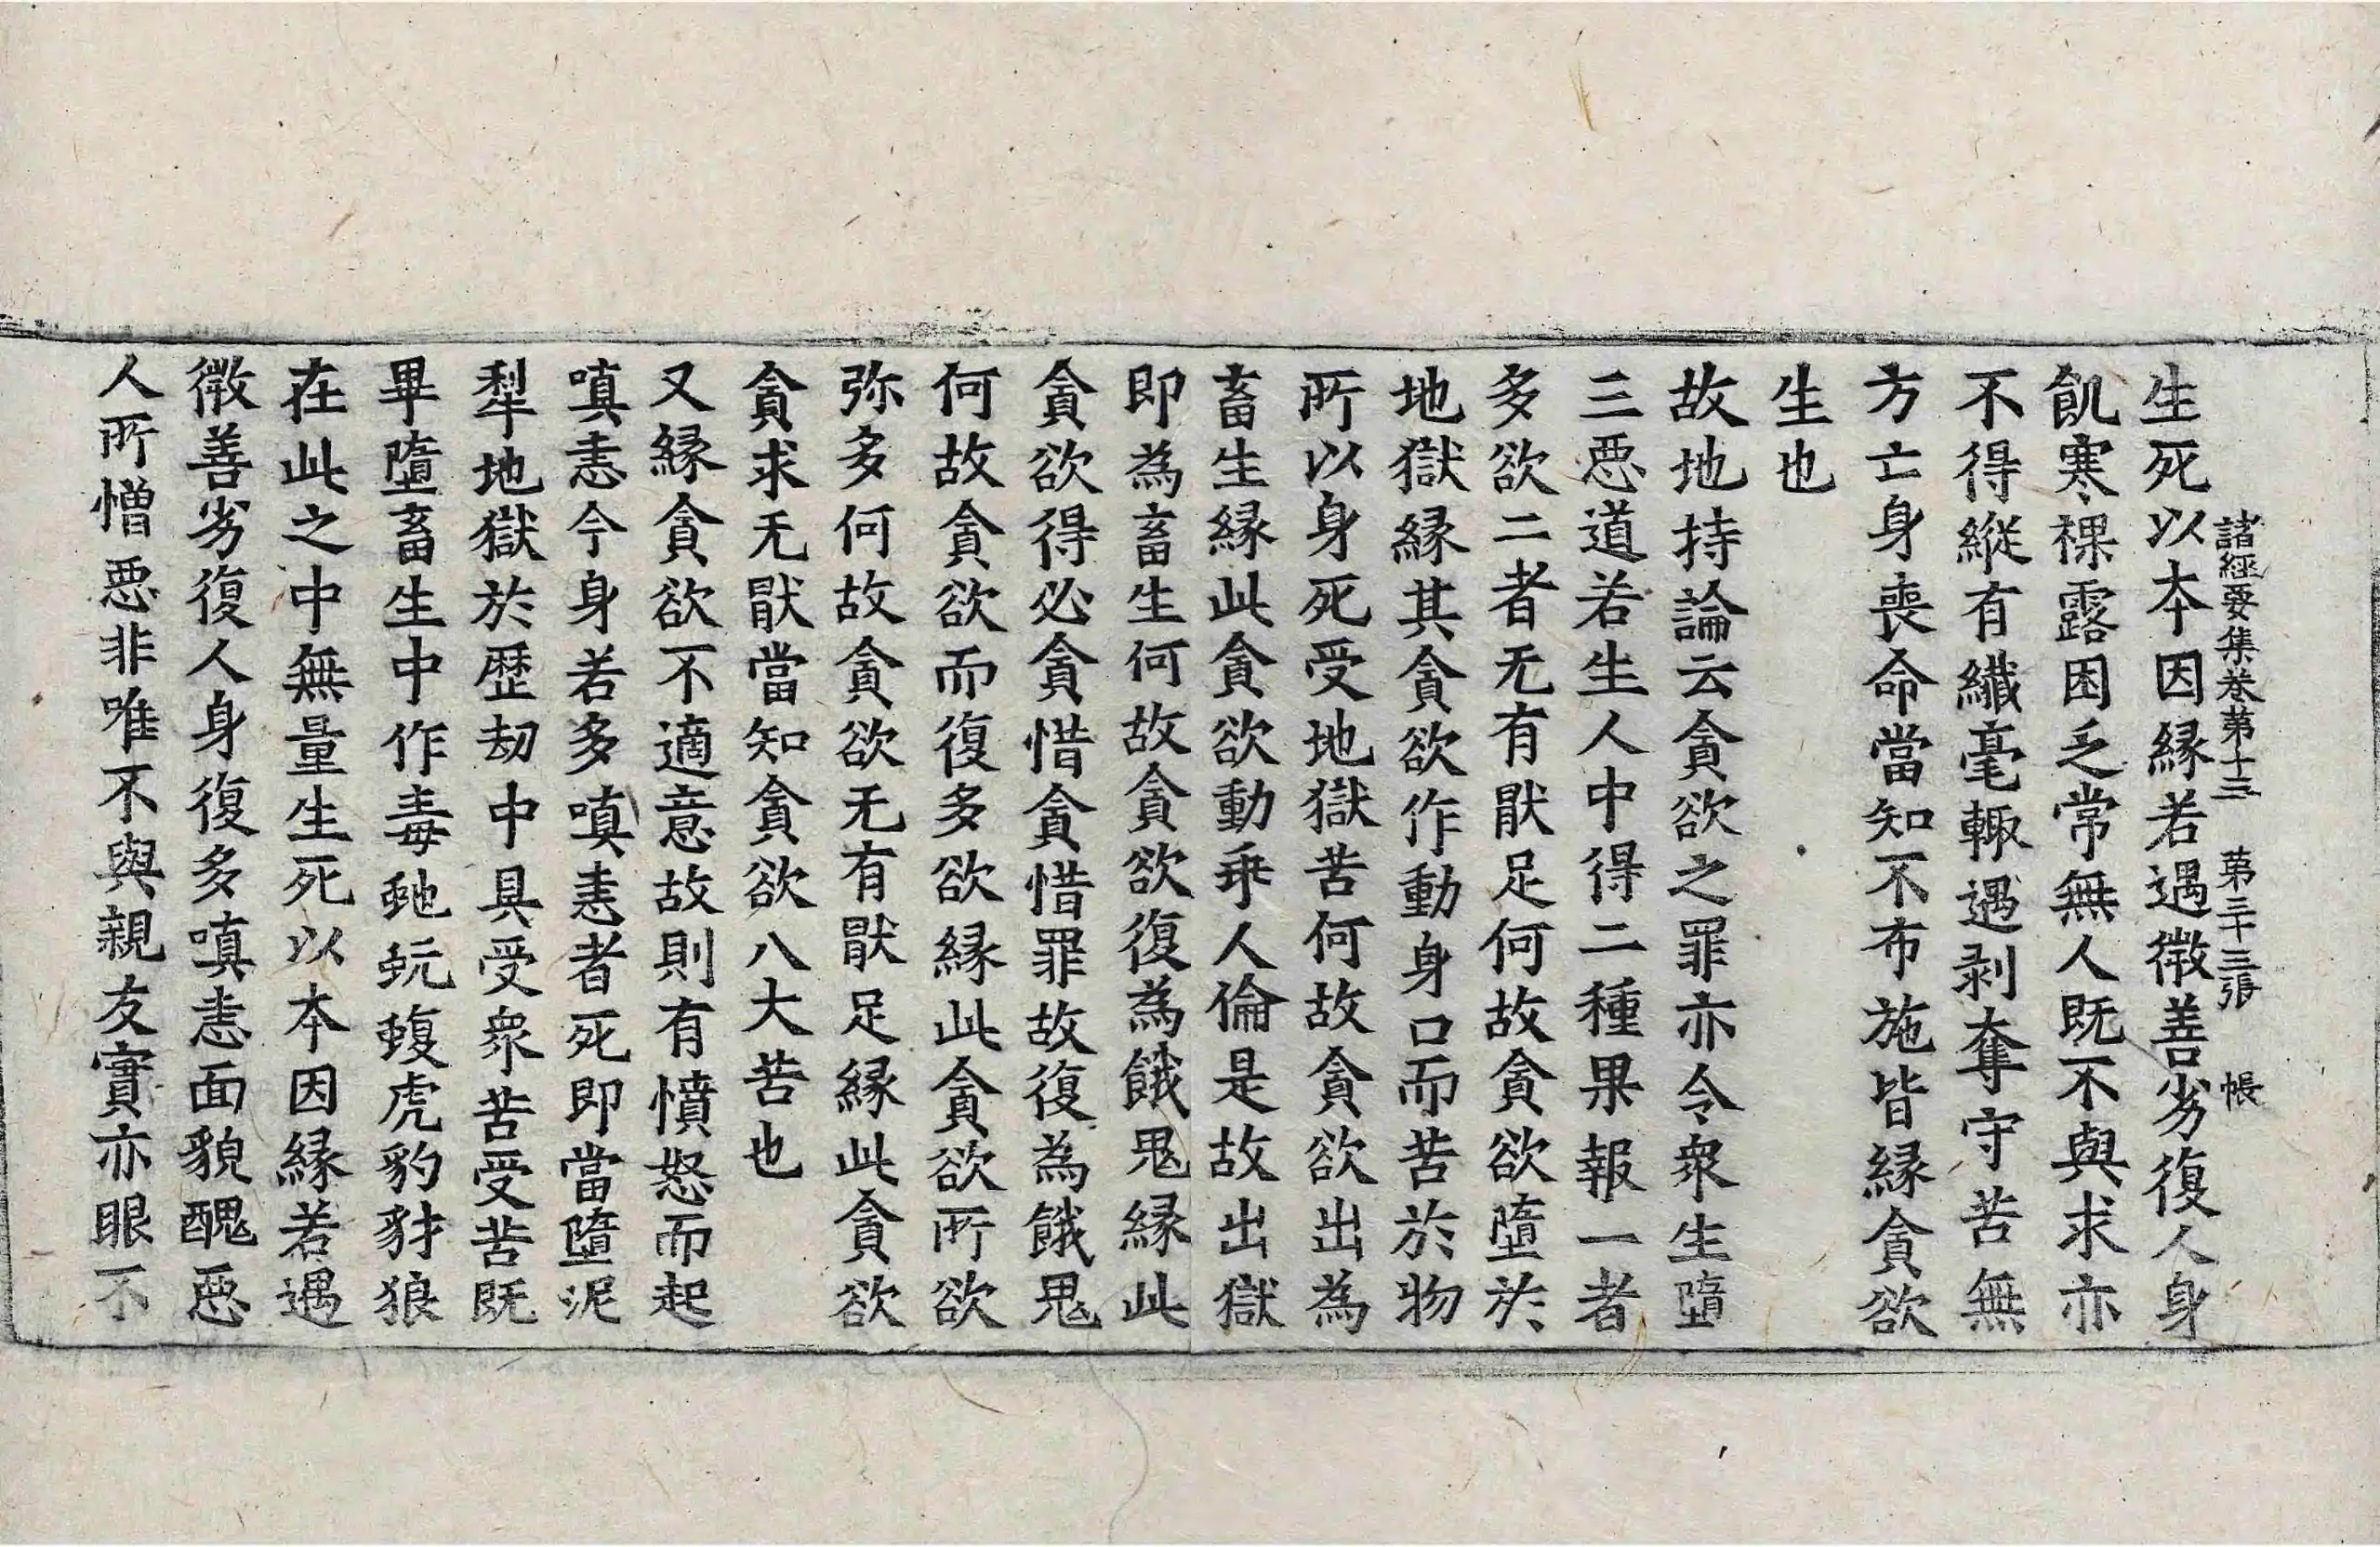 諸經要集卷第十三　第三十三張　帳
生死以本因縁若遇微善劣復人身
飢寒裸露困乏常無人既不與求亦
不得縱有纖毫輙遇剥奪守苦無
方亡身喪命當知不布施皆縁貪欲
生也
故地持論云貪欲之罪亦令衆生墮
三惡道若生人中得二種果報一者
多欲二者无有猒足何故貪欲墮於
地獄縁其貪欲作動身口而苦於物
所以身死受地獄苦何故貪欲出為
畜生縁此貪欲動乖人倫是故出獄
即為畜生何故貪欲復為餓鬼縁此
貪欲得必貪惜貪惜罪故復為餓鬼
何故貪欲而復多欲縁此貪欲所欲
弥多何故貪欲无有猒足縁此貪欲
貪求无猒當知貪欲八大苦也
又縁貪欲不適意故則有憤怒而起
嗔恚今身若多嗔恚者死即當墮泥
犁地獄於歷劫中具受衆苦受苦既
畢墮畜生中作毒虵蚖蝮虎豹豺狼
在此之中無量生死以本因縁若遇
微善劣復人身復多嗔恚面貌醜惡
人所憎惡非唯不與親友實亦眼不